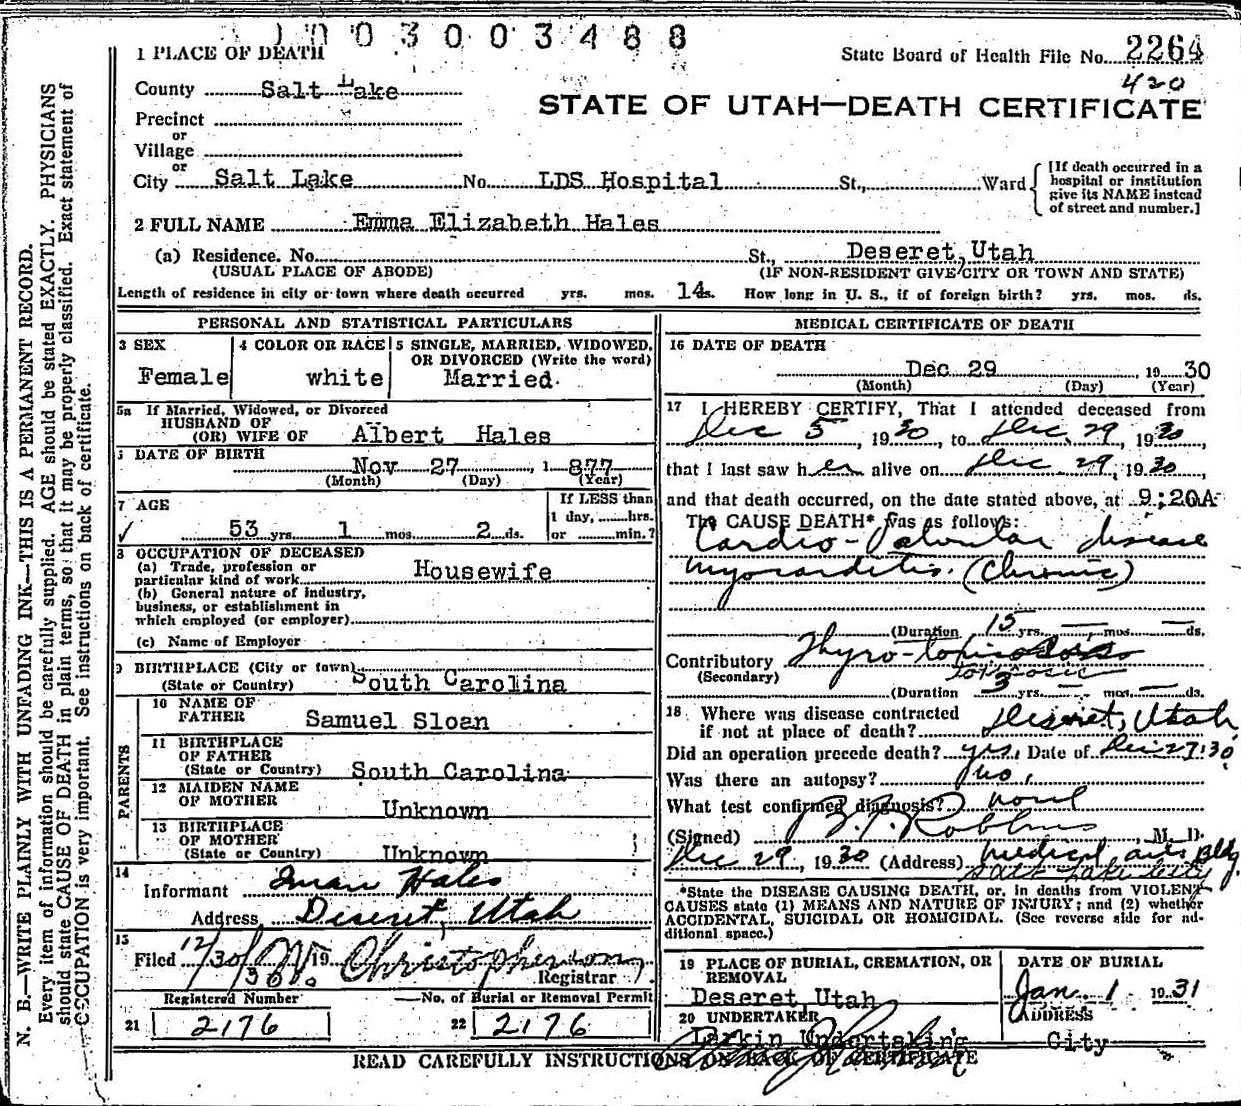 1003003488
1 PLACE OF DEATH
State Board of Health File No. 2264
420
County Salt Lake
STATE OF UTAH—DEATH CERTIFICATE
Precinct
or
Village
or
City Salt Lake No. LDS Hospital St., Ward
[If death occurred in a
hospital or institution
give its NAME instead
of street and number.]
2 FULL NAME Emma Elizabeth Hales
(a) Residence. No. St., Deseret, Utah
(USUAL PLACE OF ABODE) (IF NON-RESIDENT GIVE CITY OR TOWN AND STATE)
Length of residence in city or town where death occurred yrs. mos. 14 ds. How long in U. S., if of foreign birth? yrs. mos. ds.
PERSONAL AND STATISTICAL PARTICULARS
3 SEX
Female
4 COLOR OR RACE
white
5 SINGLE, MARRIED, WIDOWED,
OR DIVORCED (Write the word)
Married
5a If Married, Widowed, or Divorced
HUSBAND OF
(OR) WIFE OF Albert Hales
DATE OF BIRTH
Nov 27, 1877
(Month) (Day) (Year)
7 AGE
53 yrs. 1 mos. 2 ds.
If LESS than
1 day, hrs.
or min.?
8 OCCUPATION OF DECEASED
(a) Trade, profession or
particular kind of work Housewife
(b) General nature of industry,
business, or establishment in
which employed (or employer)
(c) Name of Employer
9 BIRTHPLACE (City or town)
(State or Country) South Carolina
PARENTS
10 NAME OF
FATHER Samuel Sloan
11 BIRTHPLACE
OF FATHER
(State or Country) South Carolina
12 MAIDEN NAME
OF MOTHER Unknown
13 BIRTHPLACE
OF MOTHER
(State or Country) Unknown
14
Informant Hales
Address Deseret, Utah
15
Filed 12/30/30 19 Christopherson
Registrar
Registered Number
21 2176
No. of Burial or Removal Permit
22 2176
MEDICAL CERTIFICATE OF DEATH
16 DATE OF DEATH
Dec 29, 1930
(Month) (Day) (Year)
17 I HEREBY CERTIFY, That I attended deceased from
Dec 5, 1930, to Dec. 29, 1930,
that I last saw her alive on Dec 29, 1930
and that death occurred, on the date stated above, at 9:20A
The CAUSE DEATH* was as follows:
Cardio-Valvular disease
myocarditis. (Chronic)
(Duration 15 yrs. — mos. — ds.
Contributory Thyro-
(Secondary) toxicosis
(Duration 3 yrs. — mos. — ds.
18 Where was disease contracted
if not at place of death? Deseret, Utah
Did an operation precede death? yes. Date of Dec 27, 30
Was there an autopsy? no.
What test confirmed diagnosis?
(Signed) Robbins M. D.
Dec 29, 1930 (Address) Medical Arts Bldg.
Salt Lake City
*State the DISEASE CAUSING DEATH, or, in deaths from VIOLENT
CAUSES state (1) MEANS AND NATURE OF INJURY; and (2) whether
ACCIDENTAL, SUICIDAL OR HOMICIDAL. (See reverse side for ad-
ditional space.)
19 PLACE OF BURIAL, CREMATION, OR
REMOVAL
Deseret, Utah
DATE OF BURIAL
Jan. 1 1931
20 UNDERTAKER
Larkin Undertaking
ADDRESS
City
READ CAREFULLY INSTRUCTIONS ON BACK OF CERTIFICATE
N. B.—WRITE PLAINLY WITH UNFADING INK—THIS IS A PERMANENT RECORD.
Every item of information should be carefully supplied. AGE should be stated EXACTLY. PHYSICIANS
should state CAUSE OF DEATH in plain terms, so that it may be properly classified. Exact statement of
OCCUPATION is very important. See instructions on back of certificate.